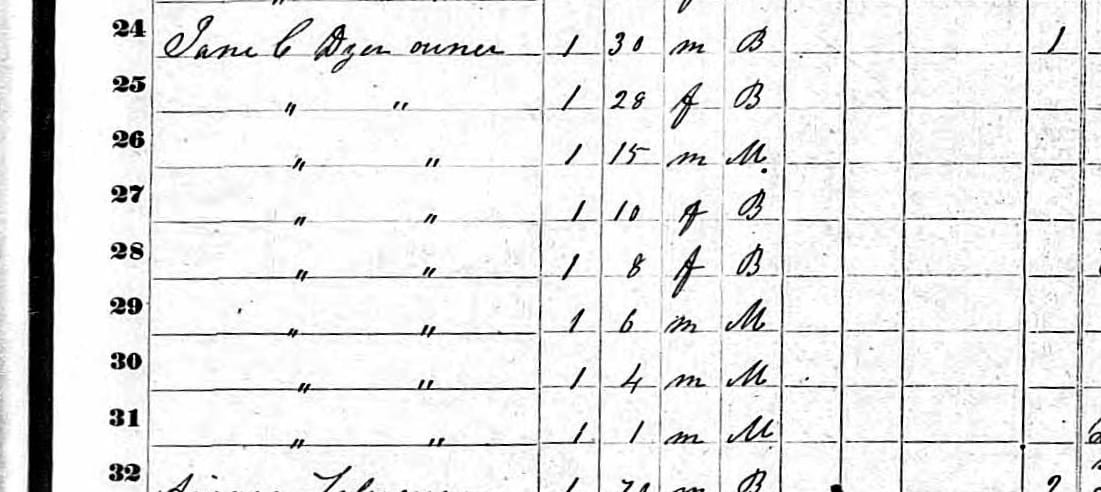 24 Jane C Dyer owner 1 30 m B 1
25 " " 1 28 f B
26 " " 1 15 m M
27 " " 1 10 f B
28 " " 1 8 f B
29 " " 1 6 m M
30 " " 1 4 m M
31 " " 1 1 m M
32 1 m B 2